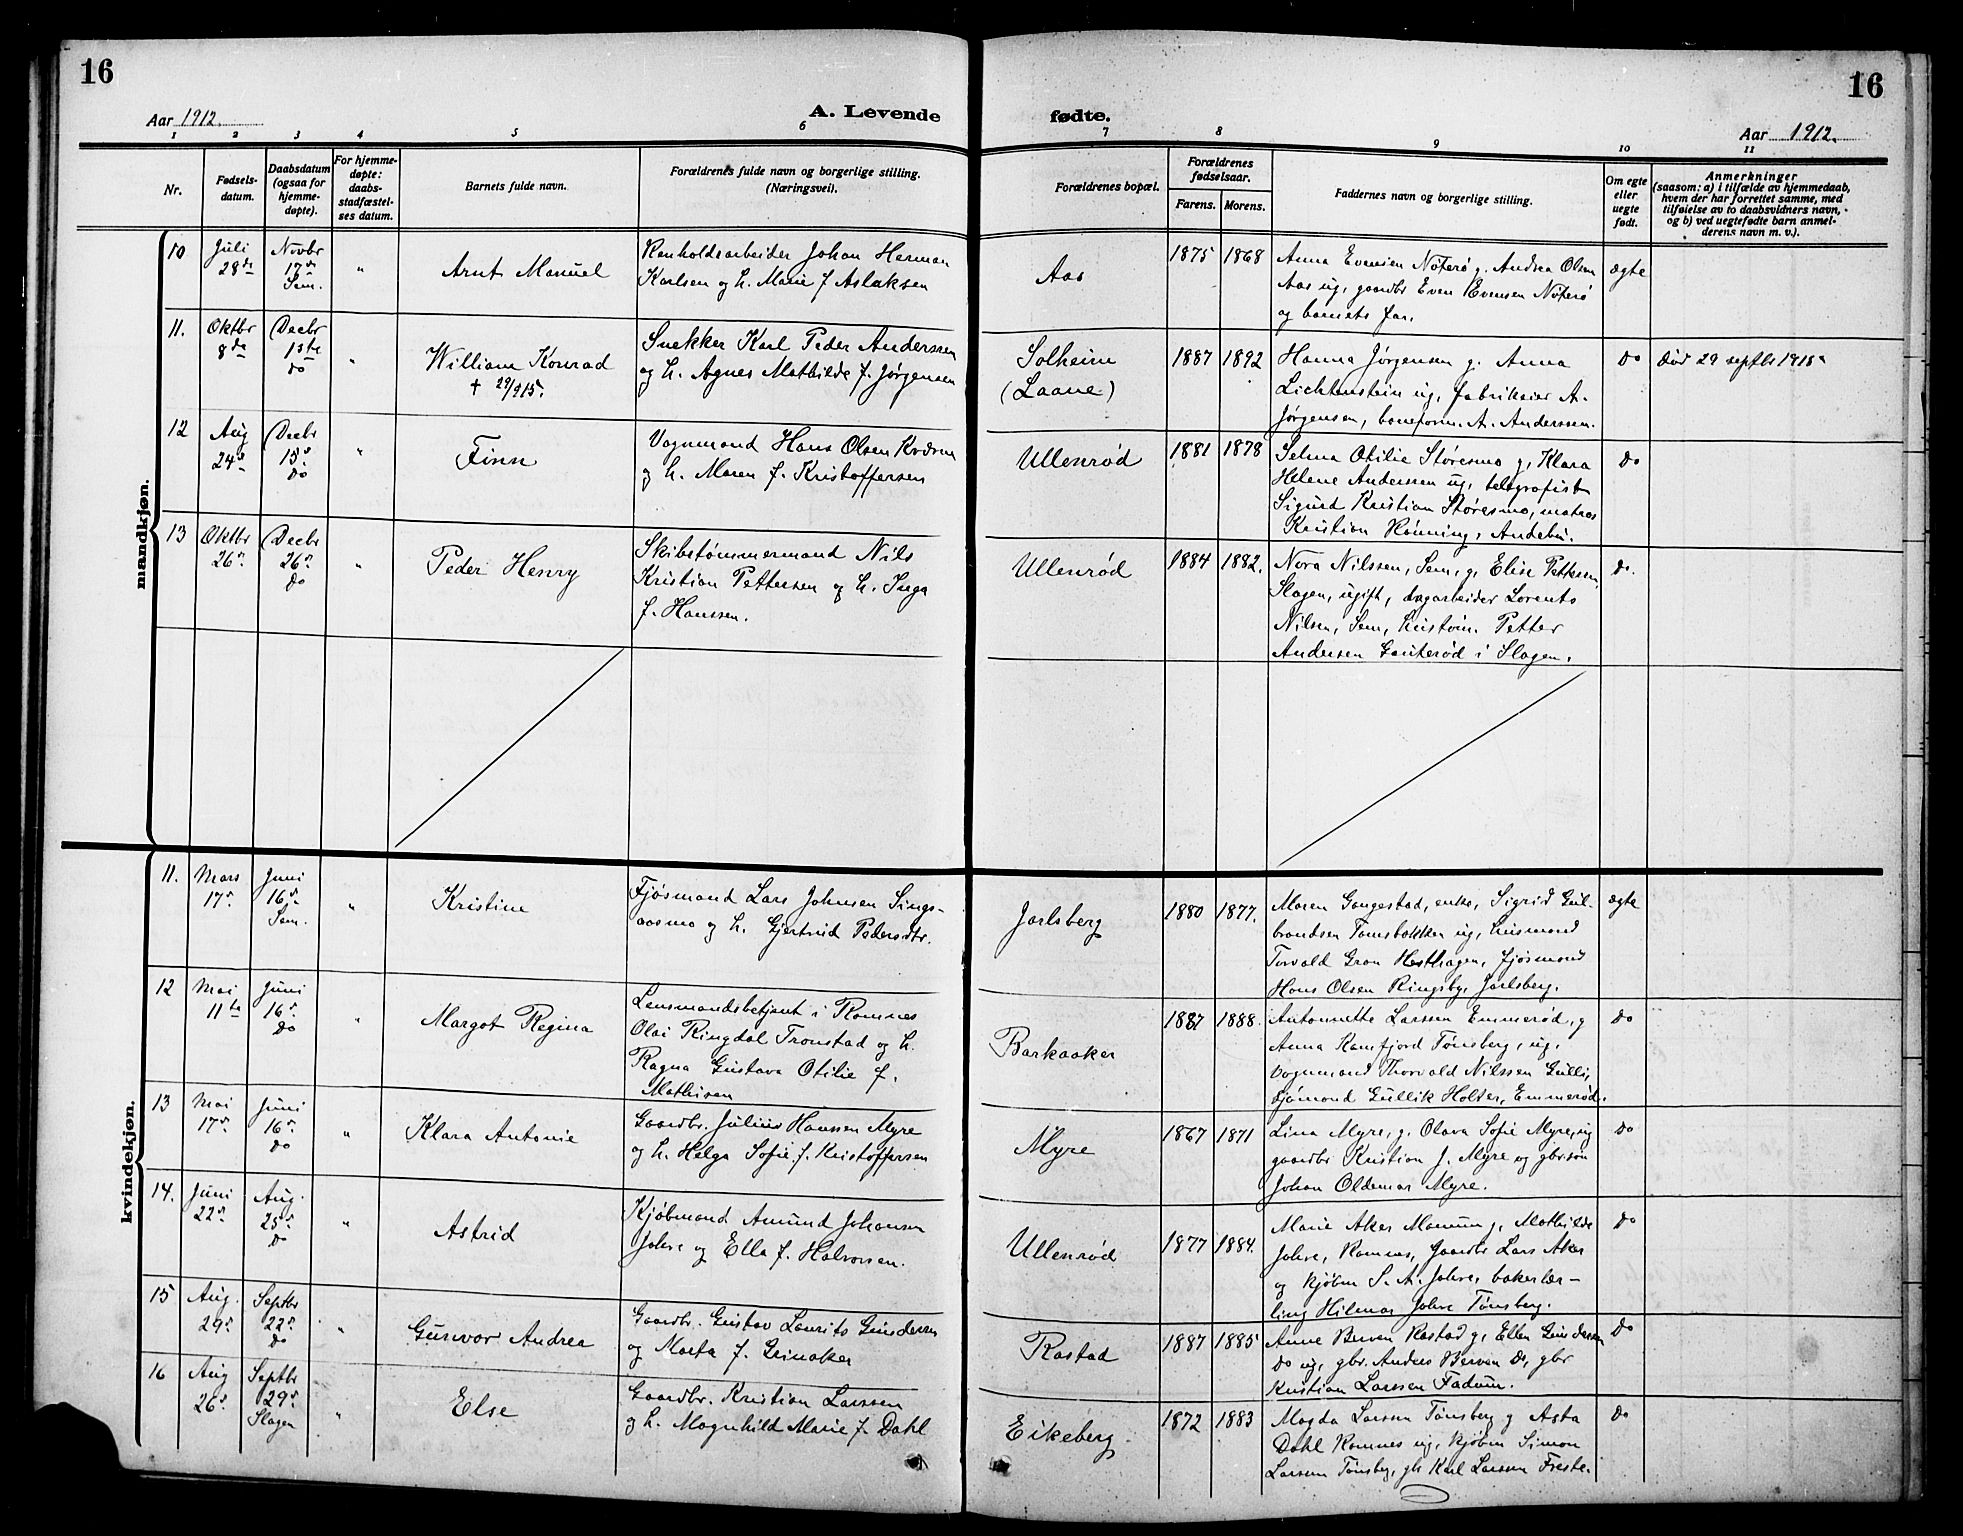 16
16
Aar 1912.
A. Levende
fødte.
Aar 1912.
1 2 3 4 5 6 7 8 9 10 11
Nr.
Fødsels-
datum.
Daabsdatum
(ogsaa for
hjemme-
døpte).
For hjemme-
døpte:
daabs-
stadfæstel-
ses datum.
Barnets fulde navn.
Forældrenes fulde navn og borgerlige stilling.
(Næringsvei).
Forældrenes bopæl.
Forældrenes
fødselsaar.
Farens. Morens.
Faddernes navn og borgerlige stilling.
Om egte
eller
uegte
født.
Anmerkninger
(saasom: a) i tilfælde av hjemmedaab,
hvem der har forrettet samme, med
tilføielse av to daabsvidners navn,
og b) ved uegtefødte barn anmel-
derens navn m. v.).
mandkjøn.
10
Juli
28de
Novbr
17de
Sem.
"
Arnt Manuel
Renholdsarbeider Johan Herman
Karlsen og h. Marie f. Aslaksen
Aas
1875 1868
Anna Evensen Nøterø g. Andrea Olsen
Aas ug, gaardbr Even Evensen Nøterø
og barnets far.
ægte
11.
Oktbr
8de
Decbr
15te
do
"
William Konrad
† 29/9 15.
Snekker Karl Peder Anderssen
og h. Agnes Mathilde f. Jørgensen
Solheim
(Laane)
1887 1892
Hanna Jørgensen g. Anna
Lichtenstein ug, fabrikeier A.
Jørgensen, baneform. A. Anderssen.
do
død 29 septbr 1915
12
Aug
24de
Decbr
15de
do
"
Finn
Vognmand Hans Olsen Kværne
og h. Maren f. Kristoffersen
Ullenrød
1881 1878
Selma Otilie Støresmo g, Klara
Helene Andersen ug, telegrafist
Sigurd Kristian Støresmo, matros
Kristian Rønning, Andebu.
do
13
Oktbr
26de
Decbr
26de
do
"
Peder Henry
Skibstømmermand Nils
Kristian Pettersen og h. Inga
f. Hanssen.
Ullenrød
1884 1882.
Nora Nilssen, Sem, g, Elise Pettersen,
Slagen, ugift, dagarbeider Lorents
Nilsen, Sem, hustøm. Petter
Andersen Gauterød i Slagen.
do.
kvindekjøn.
11.
Mars
17de
Juni
16de
Sem.
"
Kristine
Fjøsmand Lars Johnsen Sings-
aasmo og h. Gjertrud Pedersdtr.
Jarlsberg
1880 1877.
Maren Gangestad, enke, Sigrid Gul-
brandsen Tomsbakken ug, husmand
Torvald Gran Hesthagen, fjøsmand
Hans Olsen Ringsby, Jarlsberg.
ægte
12
Mai
11te
Juni
16de
do
"
Margot Regina
Lensmandsbetjent i Ramnes
Olai Ringdal Tronstad og h.
Ragna Gustava Otilie f.
Mathisen
Barkaaker
1887 1888.
Antonette Larssen Emmerød, g
Anna Ramfjord Tønsberg, ug,
vognmand Thorvald Nilssen Gulli,
sjømand Gullik Holter, Emmerød.
do
13
Mai
17de
Juni
16de
do
"
Klara Antonie
Gaardbr. Julius Hanssen Myre
og h. Helga Sofie f. Kristoffersen
Myre
1867 1871
Lina Myre, g, Olava Sofie Myre, ug
gaardbr Kristian J. Myre og gbr.søn
Johan Oldemar Myre.
do
14.
Juni
22de
Aug.
25de
do
"
Astrid
Kjøbmand Amund Johansen
Jahre og Ella f. Halvorsen.
Ullenrød
1877 1884.
Marie Aker Manum g, Mathilde
Jahre, Ramnes, gaardbr Lars Aker
og kjøbm S. A. Jahre, bakerlær-
ling Hilmar Jahre Tønsberg.
do
15
Aug.
29de
Septbr
22de
do
"
Gunvor Andrea
Gaardbr. Gustav Laurits Gundersen
og Marta f. Grinaker
Rastad
1887 1885
Anne Berven Rastad g, Ellen Gundersen
do ug, gbr. Anders Berven do, gbr
Kristian Larssen Fadum.
do
16
Aug
26de
Septbr
29de
Slagen
"
Else
Gaardbr. Kristian Larssen
og h. Magnhild Marie f. Dahl
Eikeberg
1872 1883
Magda Larssen Tønsberg g Asta
Dahl Ramnes ug, kjøbm Simon
Larssen Tønsberg, gbr Karl Larssen Freste.
do